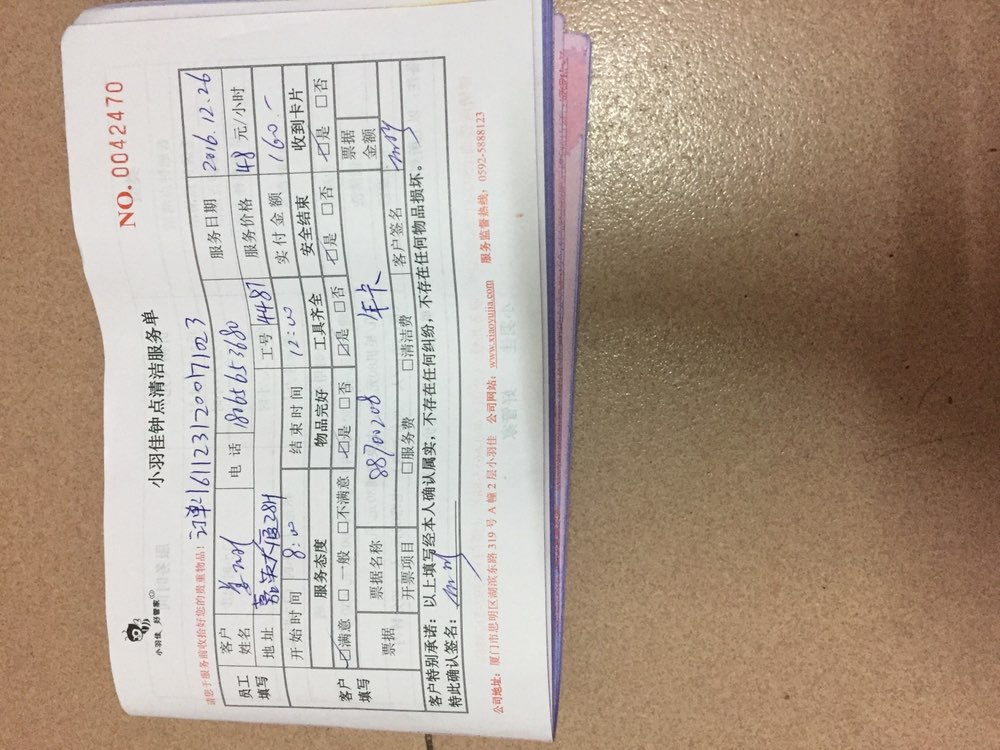 小羽佳 好管家
小羽佳钟点清洁服务单
NO.0042470
请您于服务前收拾好您的贵重物品!
订单161123120071023
员工填写
客户姓名
电话
服务日期 2016.12.26
地址
工号 4487
服务价格 48 元/小时
开始时间 8:00
结束时间 12:00
实付金额 160.-
客户填写
服务态度 物品完好 工具齐全 安全结束 收到卡片
☑满意 □一般 □不满意 ☑是 □否 ☑是 □否 ☑是 □否 ☑是 □否
票据
票据名称 88700208 年卡
票据金额
开票项目 □服务费 □清洁费 客户签名
客户特别承诺:以上填写经本人确认属实,不存在任何纠纷,不存在任何物品损坏。
特此确认签名:
公司地址:厦门市思明区湖滨东路 319 号 A 幢 2 层小羽佳 公司网站:www.xiaoyujia.com 服务监督热线:0592-5888123